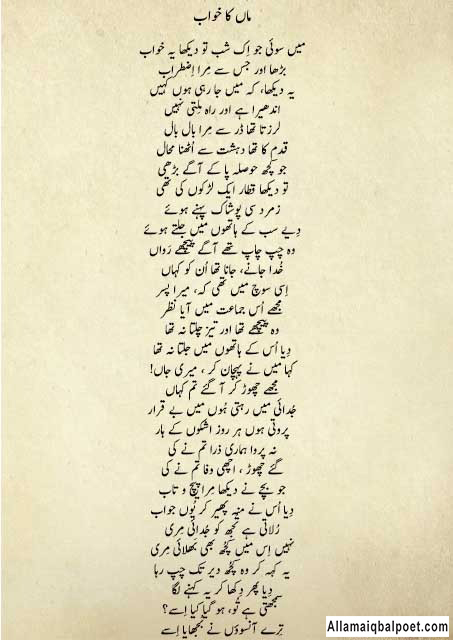 ماں کا خواب
میں سوئی جو اِک شب تو دیکھا یہ خواب
بڑھا اور جس سے مِرا اِضطراب
یہ دیکھا، کہ میں جا رہی ہوں کہیں
اندھیرا ہے اور راہ مِلتی نہیں
لرزتا تھا ڈر سے مِرا بال بال
قدم کا تھا دہشت سے اُٹھنا محال
جو کچھ حوصلہ پا کے آگے بڑھی
تو دیکھا قطار ایک لڑکوں کی تھی
زمرد سی پوشاک پہنے ہوئے
دِیے سب کے ہاتھوں میں جلتے ہوئے
وہ چپ چاپ تھے آگے پیچھے رَواں
خُدا جانے، جانا تھا اُن کو کہاں
اِسی سوچ میں تھی کہ، میرا پسر
مجھے اُس جماعت میں آیا نظر
وہ پیچھے تھا اور تیز چلتا نہ تھا
دِیا اُس کے ہاتھوں میں جلتا نہ تھا
کہا میں نے پہچان کر، میری جاں!
مجھے چھوڑ کر آ گئے تم کہاں
جُدائی میں رہتی ہُوں میں بے قرار
پروتی ہوں ہر روز اشکوں کے ہار
نہ پروا ہماری ذرا تم نے کی
گئے چھوڑ، اچھی وفا تم نے کی
جو بچے نے دیکھا مِرا پیچ و تاب
دِیا اُس نے منہ پھیر کر یُوں جواب
رُلاتی ہے تجھ کو جُدائی مِری
نہیں اِس میں کچُھ بھی بھلائی مِری
یہ کہہ کر وہ کچُھ دیر تک چپ رہا
دِیا پھر دِکھا کر یہ کہنے لگا
سمجھتی ہے تُو، ہو گیا کیا اِسے؟
تِرے آنسوؤں نے بجھایا اِسے
Allamaiqbalpoet.com